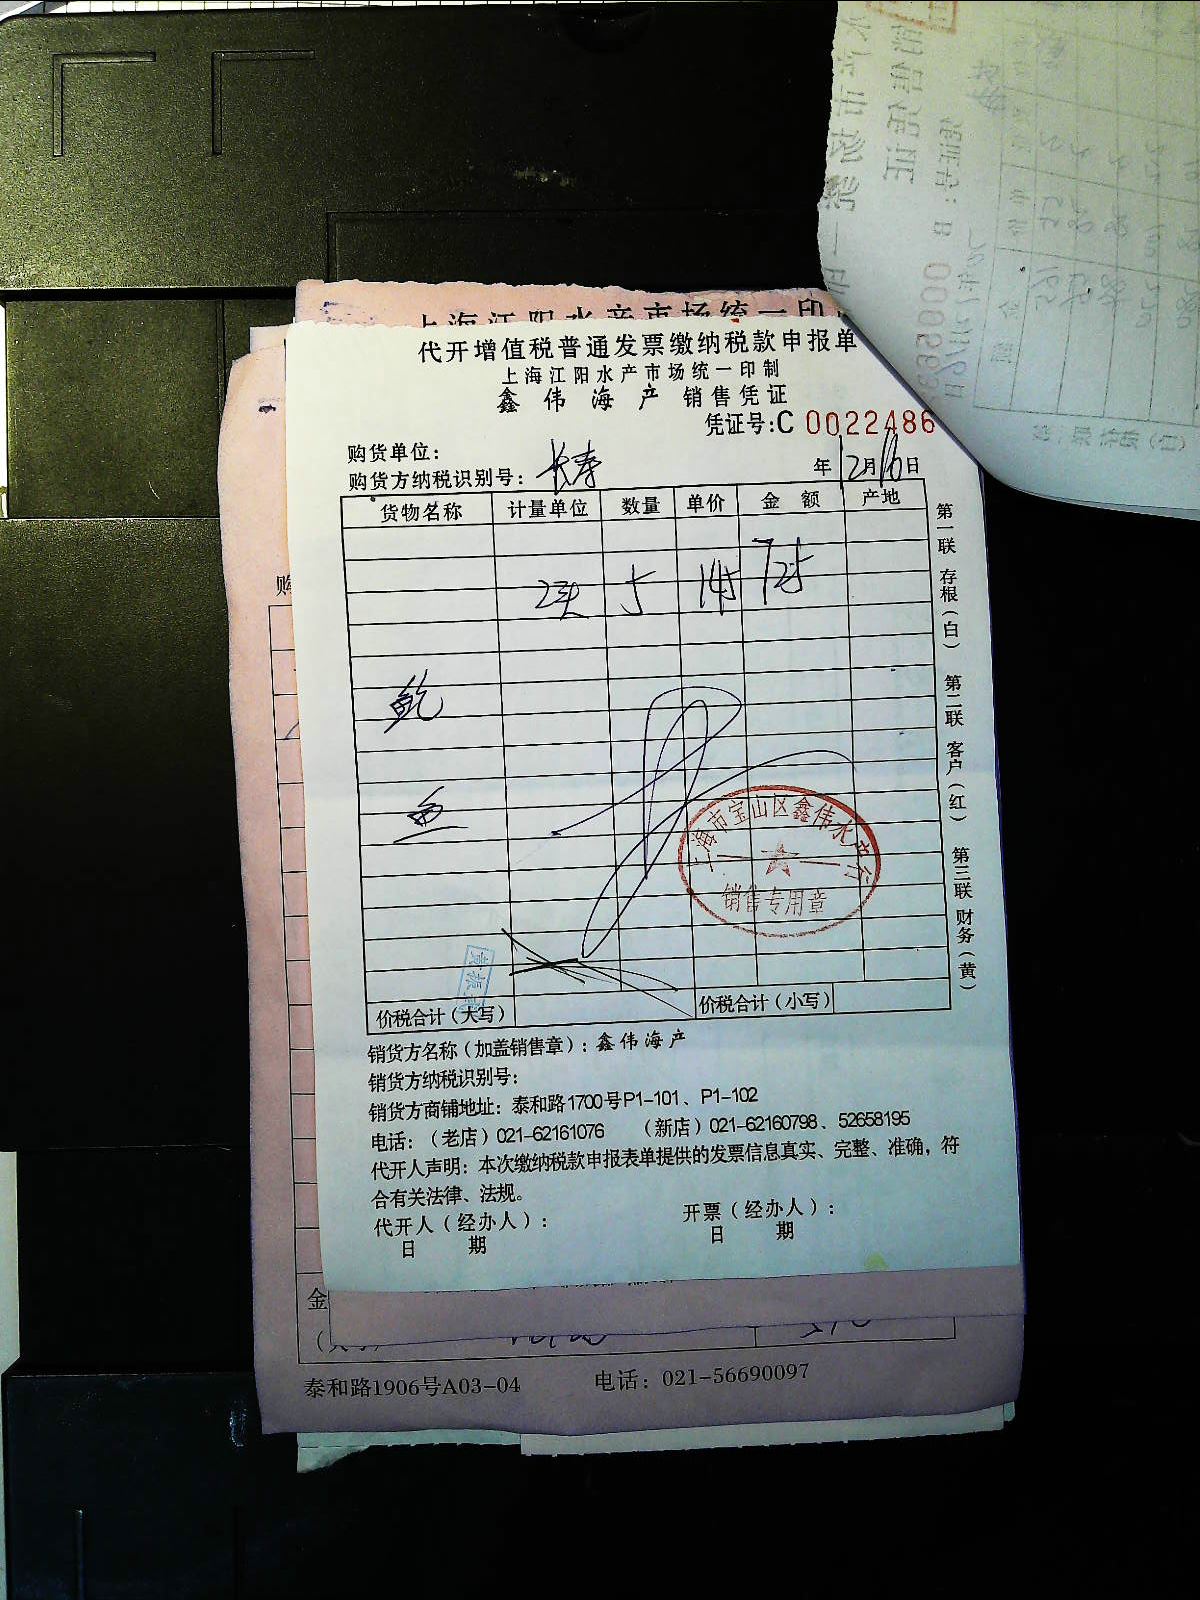 上海江阳水产市场统一印
代开增值税普通发票缴纳税款申报单
上海江阳水产市场统一印制
鑫伟海产 销售凭证
凭证号:C 0022486
购货单位:
购货方纳税识别号: 长寿 年12月16日
货物名称 计量单位 数量 单价 金额 产地
5 145 725
鲍
鱼
上海市宝山区鑫伟水产行
销售专用章
价税合计(大写) 价税合计(小写)
销货方名称(加盖销售章): 鑫伟海产
销货方纳税识别号:
销货方商铺地址: 泰和路1700号P1-101、P1-102
电话:(老店)021-62161076 (新店)021-62160798、52658195
代开人声明: 本次缴纳税款申报表单提供的发票信息真实、完整、准确，符
合有关法律、法规。
代开人(经办人): 开票(经办人):
日 期 日 期
第一联 存根(白) 第二联 客户(红) 第三联 财务(黄)
购
金
泰和路1906号A03-04 电话: 021-56690097